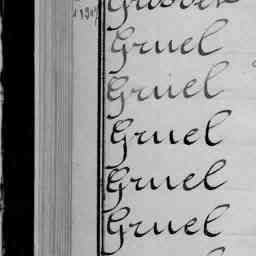 Gruel
Gruel
Gruel
Gruel
Gruel